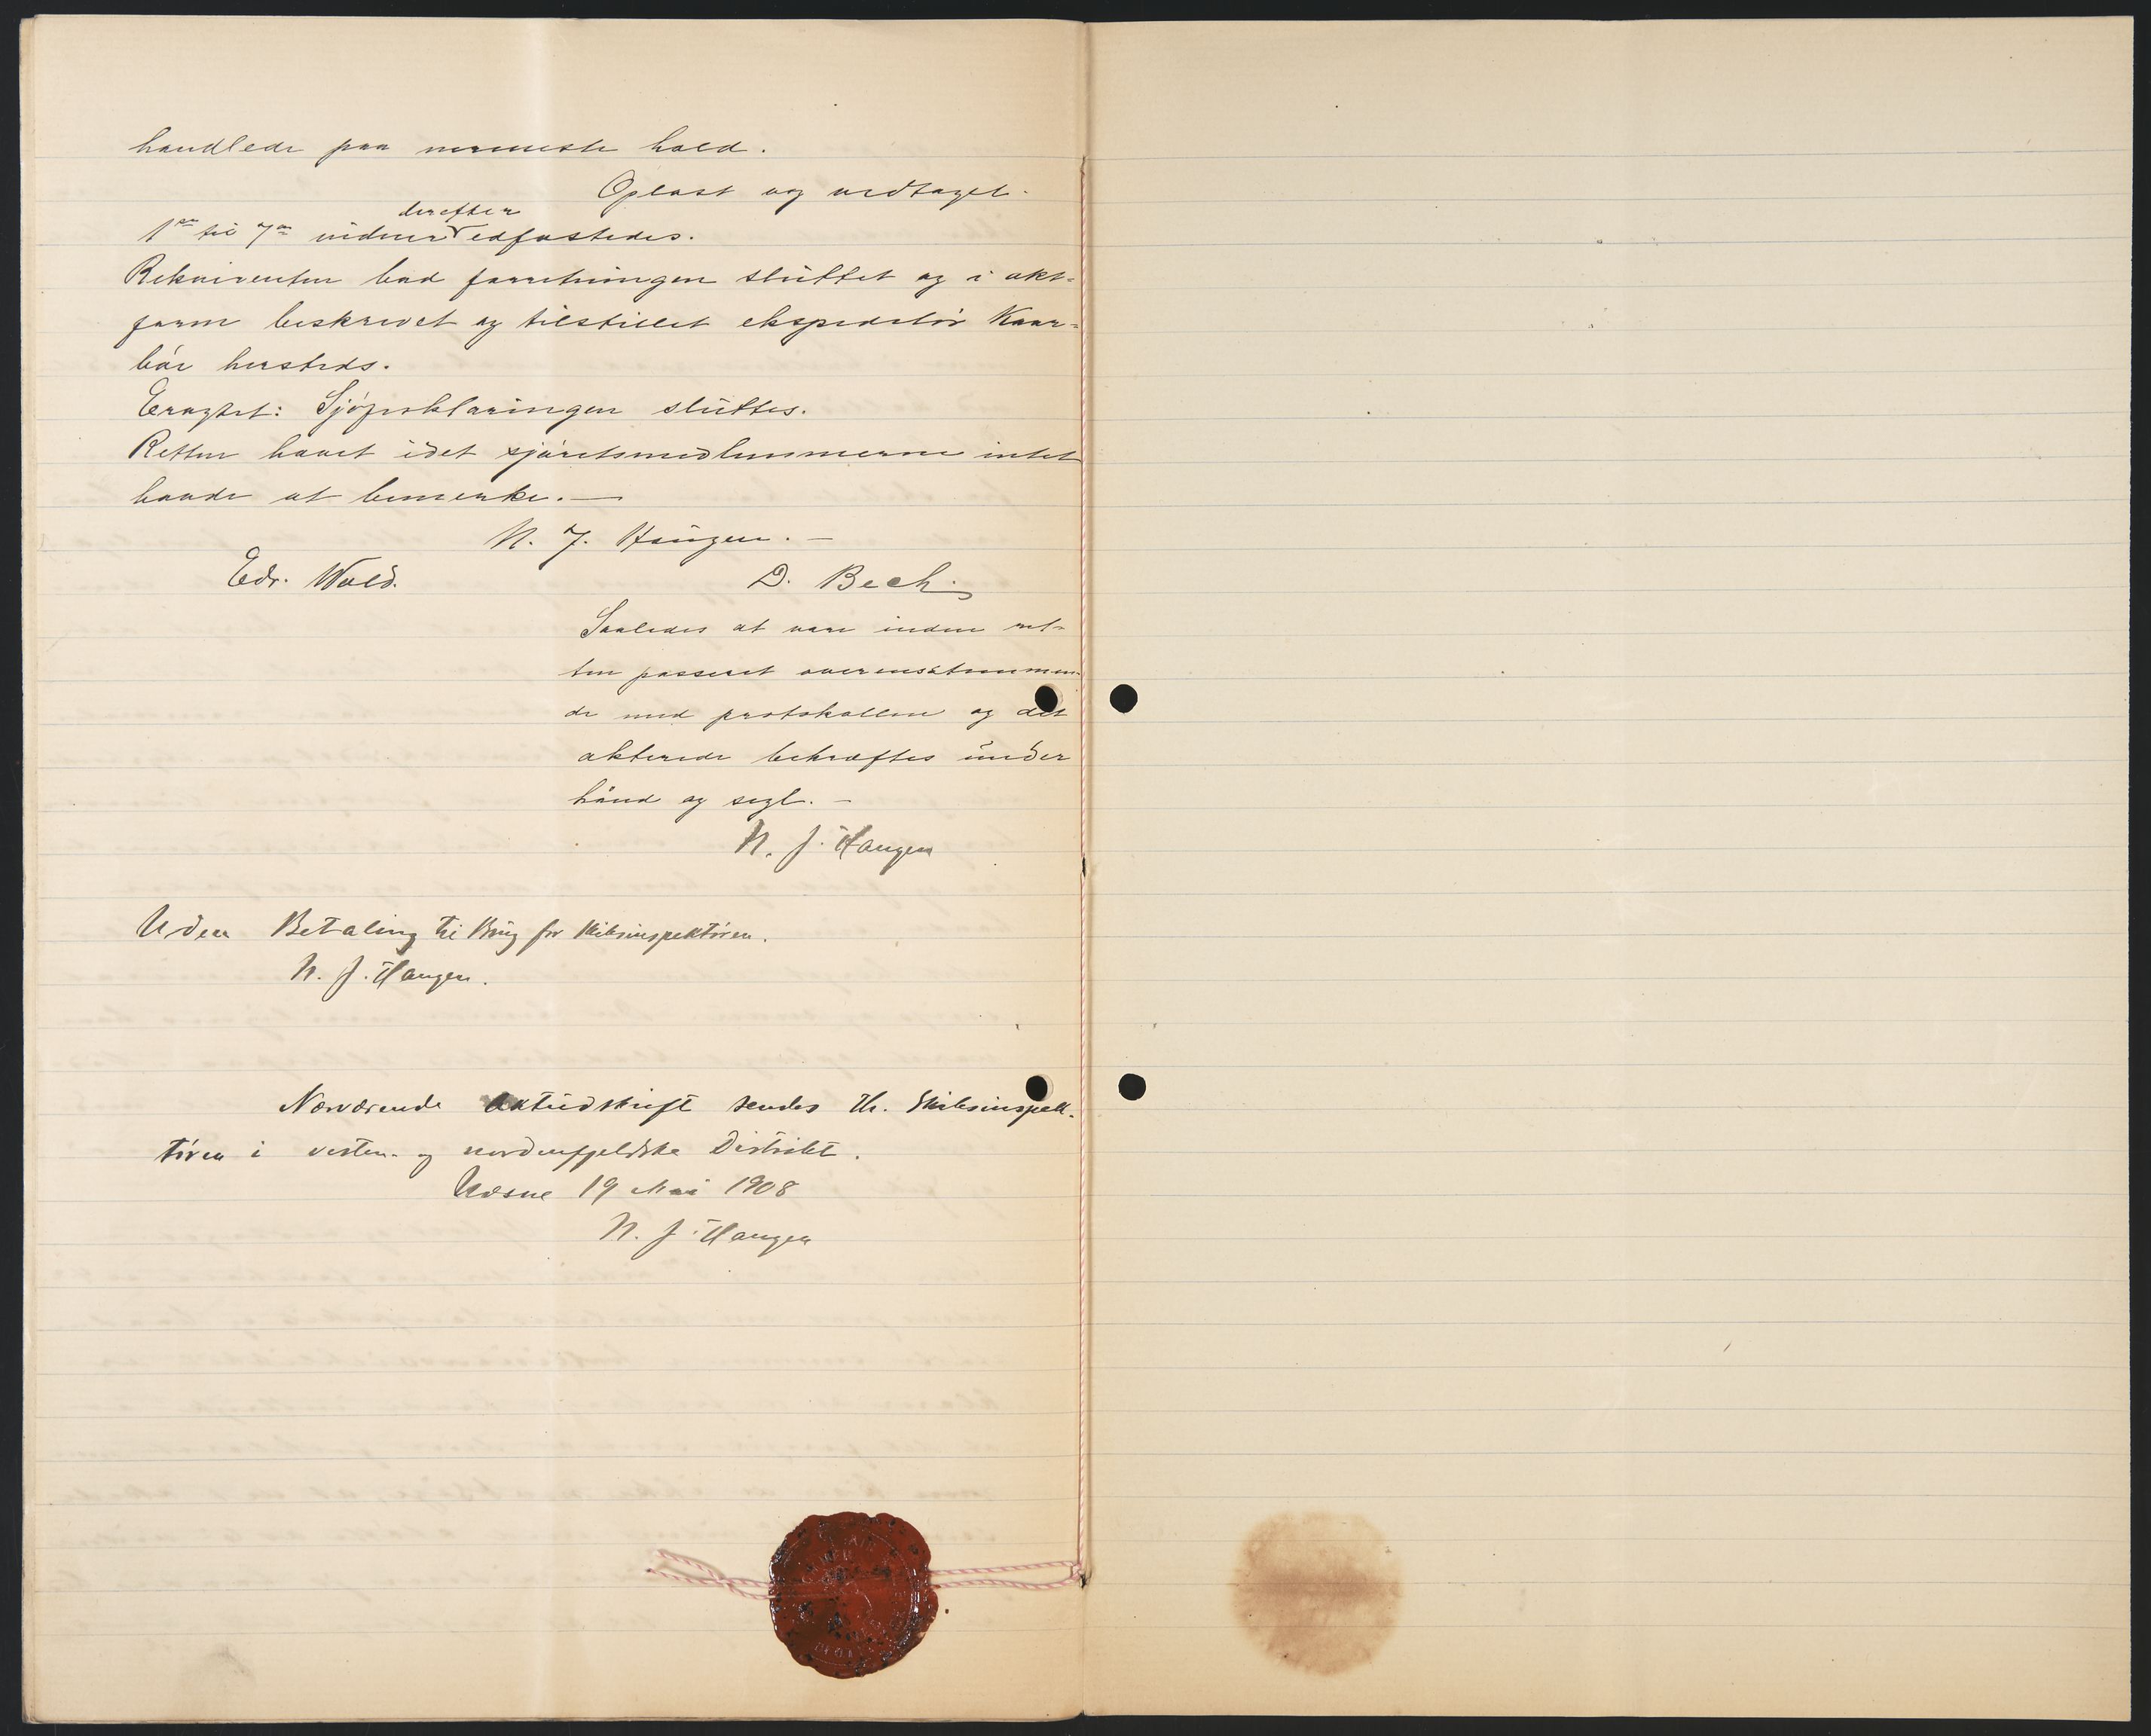 handlede paa nærmeste hold.
Oplæst og vedtaget.
derefter
1ste til 7de vidner edfæstedes.
Rekvirenten bad forretningen sluttet og i akt-
form beskrevet og tilstillet ekspeditör Kaar-
bör hersteds.
Eragtet: Sjöforklaringen sluttes.
Retten hævet idet sjöretsmedlemmerne intet
havde at bemerke. —
N. J. Haugen. —
Edv. Wold.
D. Bech.
Saaledes at være inden ret-
ten passeret overensstemmen-
de med protokollen og det
akterede bekræftes under
haand og segl. —
N. J. Haugen
Uden Betaling til Brug for Skibsinspektören.
N. J. Haugen.
Nærværende Aktudskrift sendes Hr. Skibsinspek-
tören i vesten- og nordenfjeldske Distrikt.
19 Mai 1908
N. J. Haugen